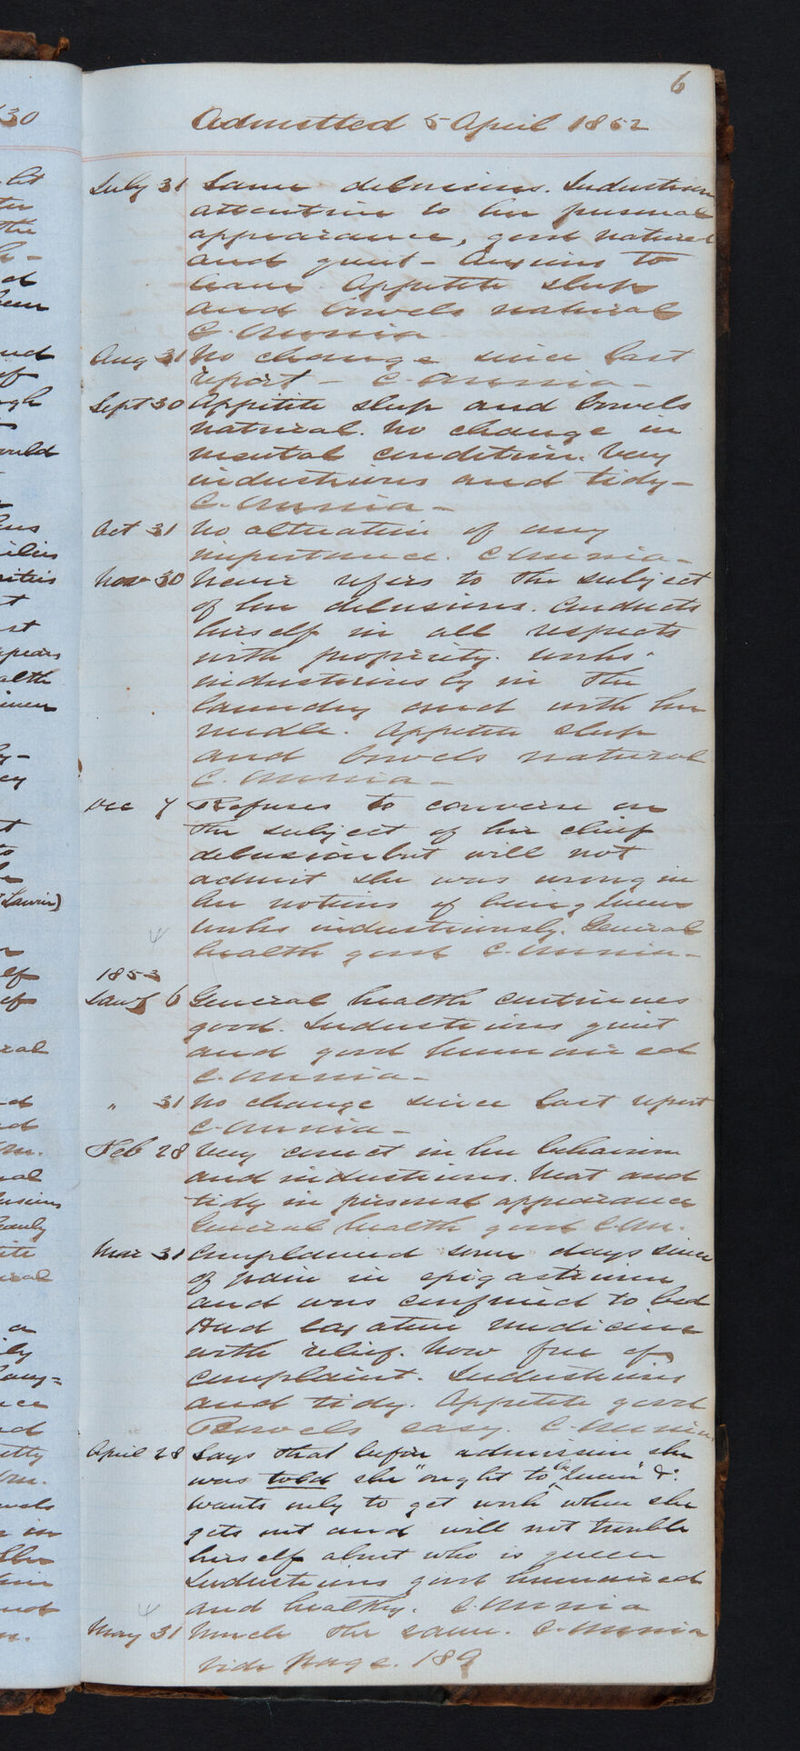 6
30
Admitted 5 April 1852
July 31 Same delusions. Industrious
attentive to her personal
appearance, good natured
and quiet - Anxious to
leave. Appetite sleep
and bowels natural
C. Mania
Aug 31 No change since last
report - C. Mania -
Sept 30 Appetite sleep and bowels
natural. No change in
mental condition. Very
industrious and tidy -
C. Mania -
Oct 31 No alteration of any
importance. C Mania -
Nov 30 Never refers to the subject
of her delusions. Conducts
herself in all respects
with propriety. Works
industriously in the
laundry and with her
needle. Appetite sleep
and bowels natural
C. Mania -
Dec 7 Refuses to converse on
the subject of her chief
delusion but will not
admit she was wrong in
her notions of being Queen
Works industriously. General
health good C. Mania -
1853
Jany 6 General health continues
good. Industrious quiet
and good humoured
C. Mania -
" 31 No change since last report
C. Mania -
Feb 28 Very correct in her behaviour
and industrious. Neat and
tidy in personal appearance
General health good C.M.
Mar 31 Complained some days since
of pain in epigastrium
and was confined to bed
Had laxative medicine
with relief. Now free of
complaint. Industrious
and tidy. Appetite good
Bowels easy. C. Mania
April 28 Says that before admission she
was told she "ought to be Queen" &c
wants only to get work when she
gets out and will not trouble
herself about who is queen
Industrious good humoured
and healthy. C. Mania
May 31 Much the same. C. Mania
Vide Page. 189